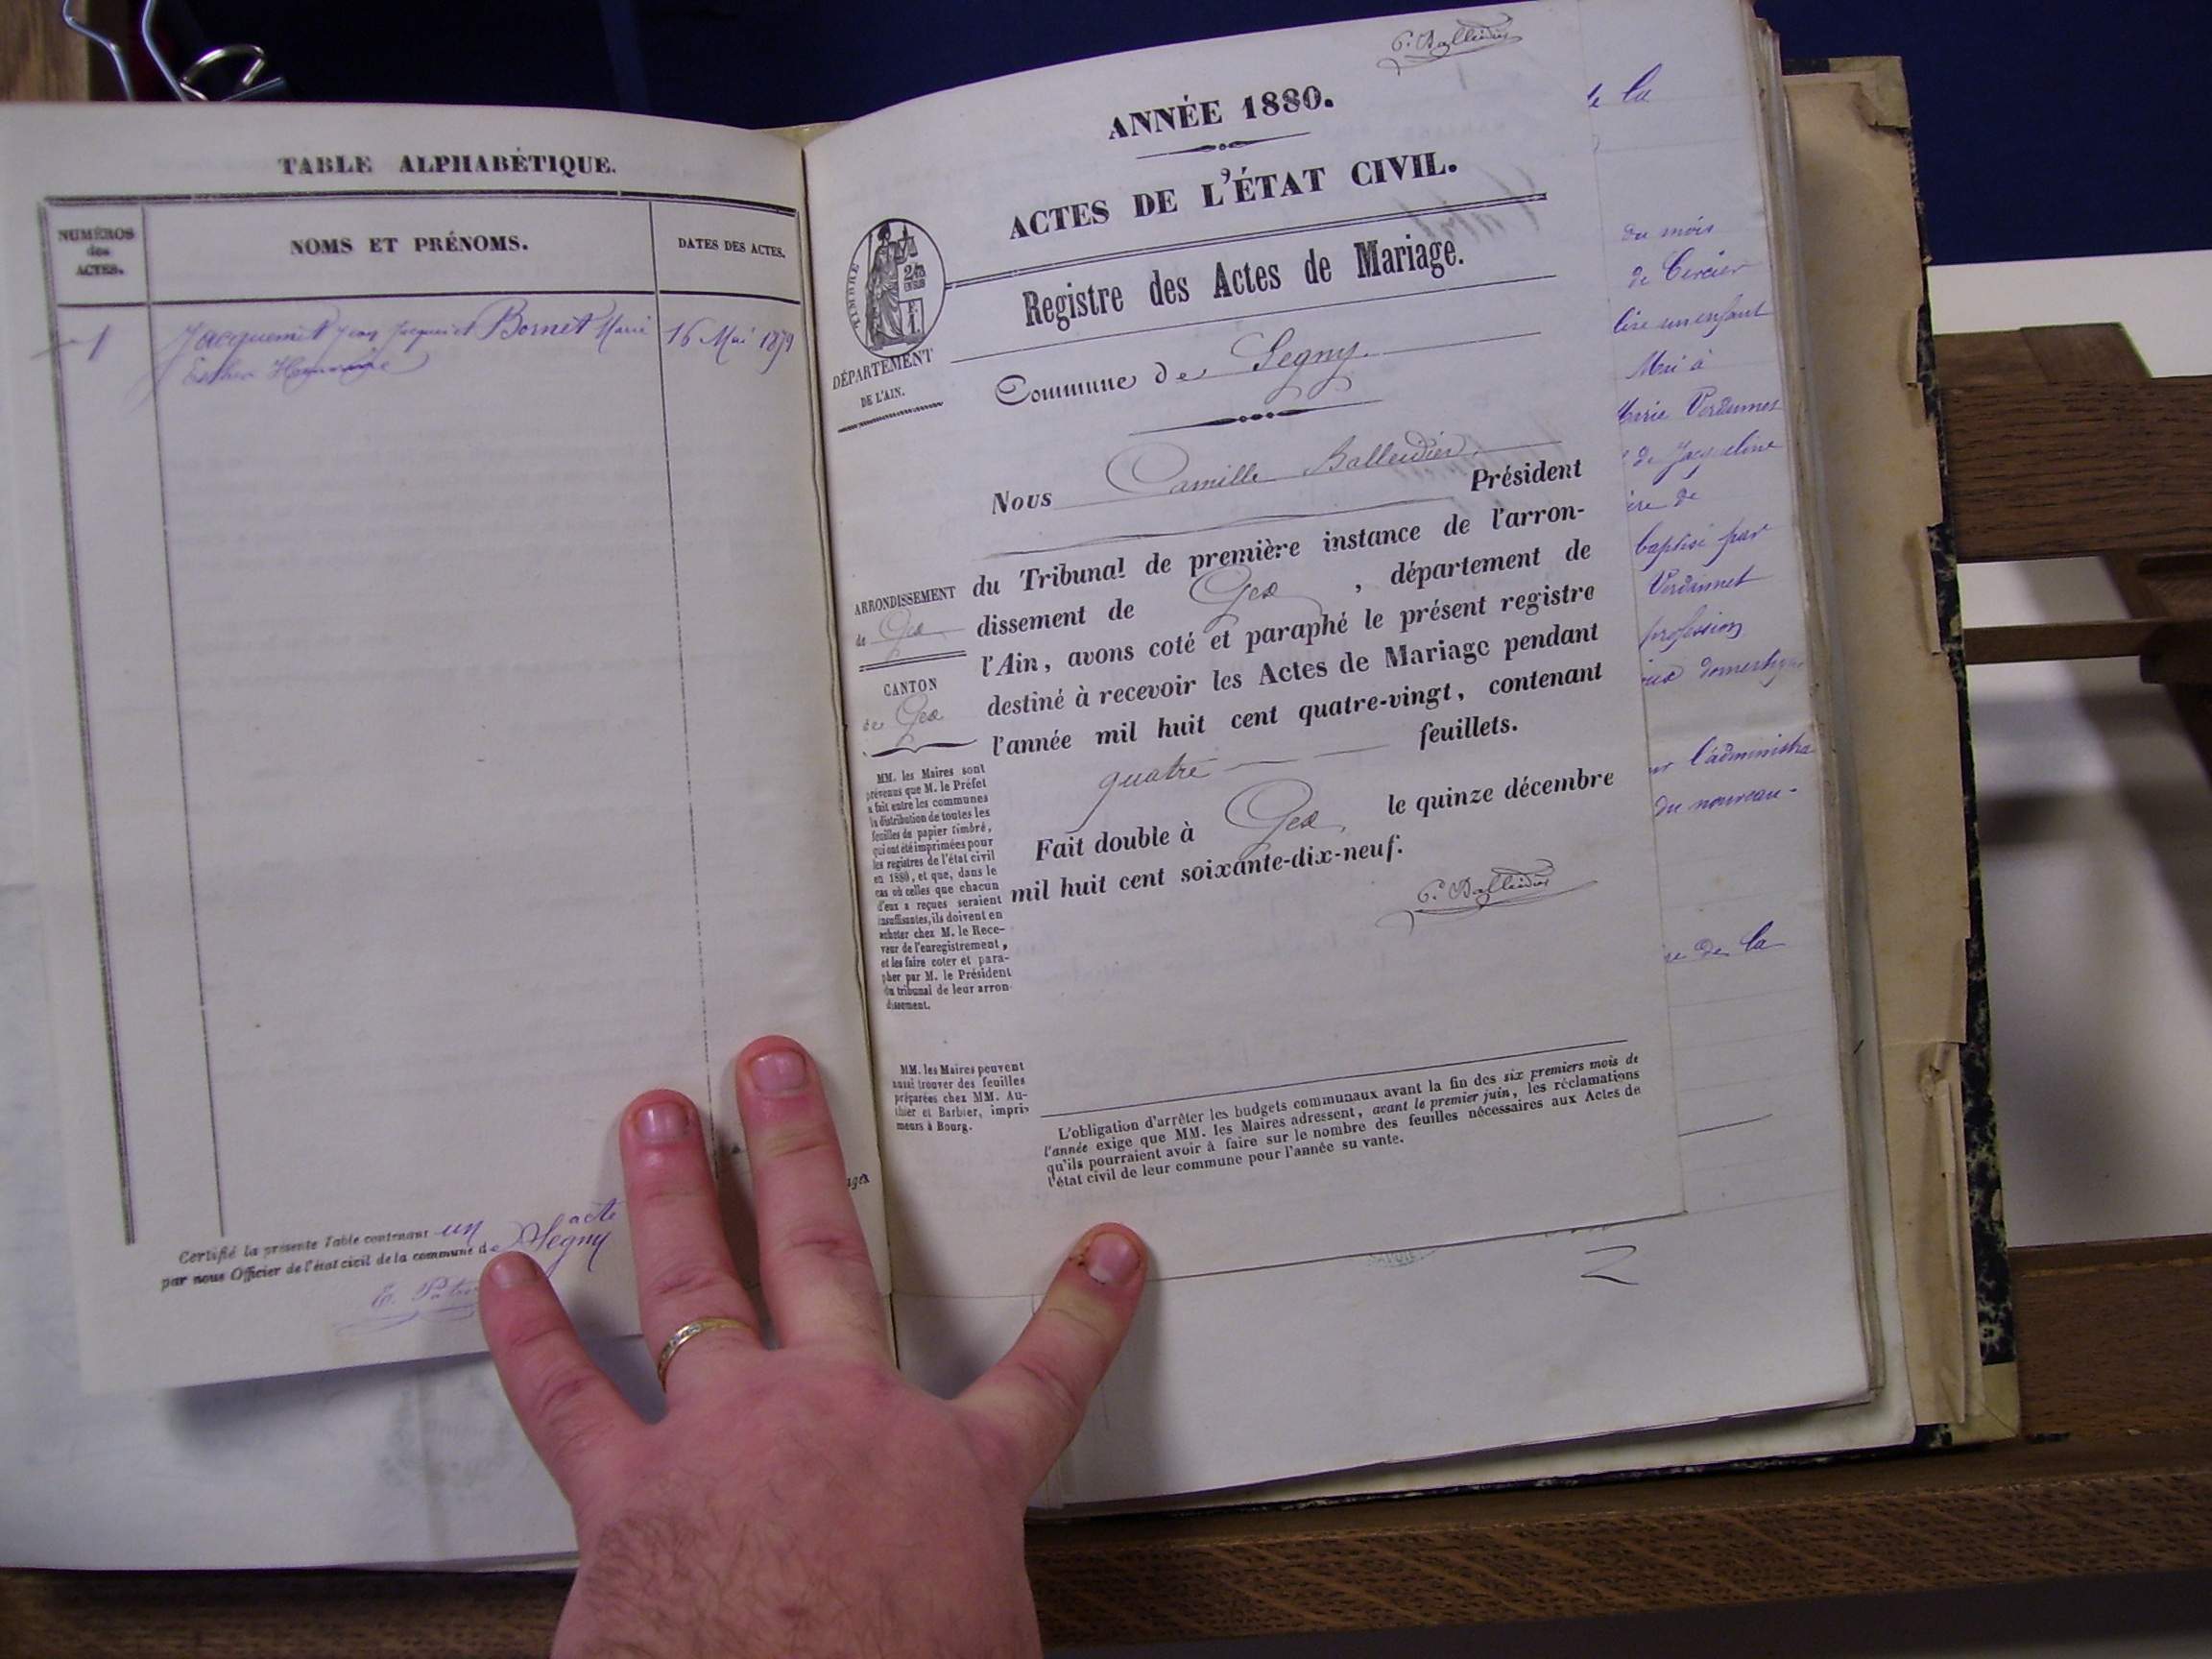 TABLE ALPHABÉTIQUE.
NUMÉROS
des
ACTES.
NOMS ET PRÉNOMS.
DATES DES ACTES.
1
Jacquemet Jean Jacques et Bornet Marie
16 Mai 1879
Esther
Certifié la présente Table contenant un acte
par nous Officier de l'état civil de la commune de Segny
ANNÉE 1880.
ACTES DE L'ÉTAT CIVIL.
TIMBRE
Registre des Actes de Mariage.
Commune de Segny.
DÉPARTEMENT
DE L'AIN.
Nous Camille Balleidier, Président
du Tribunal de première instance de l'arron-
dissement de Gex, département de
l'Ain, avons coté et paraphé le présent registre
destiné à recevoir les Actes de Mariage pendant
l'année mil huit cent quatre-vingt, contenant
quatre feuillets.
Fait double à Gex, le quinze décembre
mil huit cent soixante-dix-neuf.
C. Balleidier
ARRONDISSEMENT
de Gex
CANTON
de Gex
MM. les Maires sont
prévenus que M. le Préfet
a fait entre les communes
la distribution de toutes les
feuilles de papier timbré,
qui ont été imprimées pour
les registres de l'état civil
en 1880, et que, dans le
cas où celles que chacun
d'eux a reçues seraient
insuffisantes, ils doivent en
acheter chez M. le Rece-
veur de l'enregistrement,
et les faire coter et para-
pher par M. le Président
du tribunal de leur arron-
dissement.
MM. les Maires peuvent
aussi trouver des feuilles
préparées chez MM. Au-
thier et Barbier, impri-
meurs à Bourg.
L'obligation d'arrêter les budgets communaux avant la fin des six premiers mois de
l'année exige que MM. les Maires adressent, avant le premier juin, les réclamations
qu'ils pourraient avoir à faire sur le nombre des feuilles nécessaires aux Actes de
l'état civil de leur commune pour l'année su vante.
la
du mois
de Cercier
un enfant
Mai à
de Jacqueline
de
baptisé par
profession
l'administra
du nouveau-
de la
2